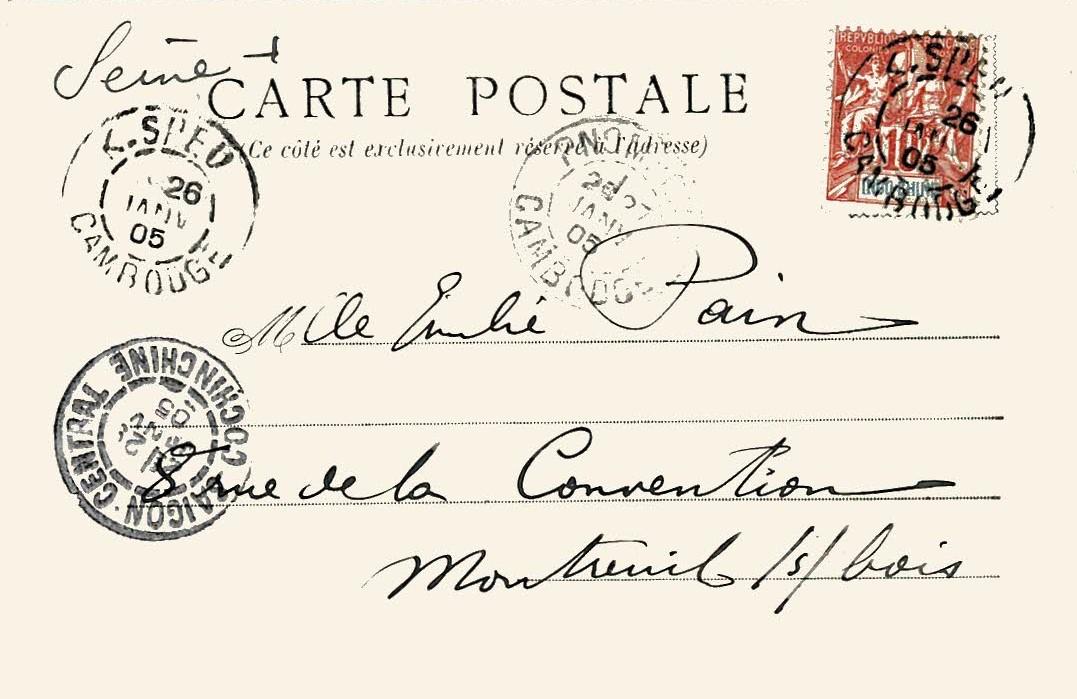 Seine
CARTE POSTALE
(Ce côté est exclusivement réservé à l'adresse)
REPUBLIQUE FRANÇAISE
COLONIES
10
INDO-CHINE
26
JANV
05
CAMBODGE
26
JANV
05
CAMBODGE
JANV
05
CAMBODGE
Mlle Emilie Pain
SAIGON-CENTRAL COCHINCHINE
JANV
05
8 rue de la Convention
Montreuil /s/ bois